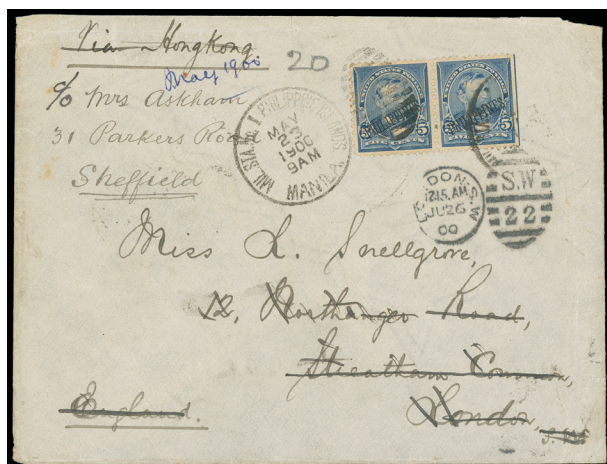 Via Hongkong
20
May 1900
c/o Mrs Askham
31 Parkers Road
Sheffield
MIL. STA. No. 1 PHILIPPINE ISLANDS
MAY
23
1900
9AM
MANILA
UNITED STATES
PHILIPPINES
5
UNITED STATES
PHILIPPINES
5
LONDON. S.W
12.15.AM
JU 26
00
S.W
22
Miss L. Snellgrove,
12, Northanger Road,
Streatham Common,
London,
S.W.
England.